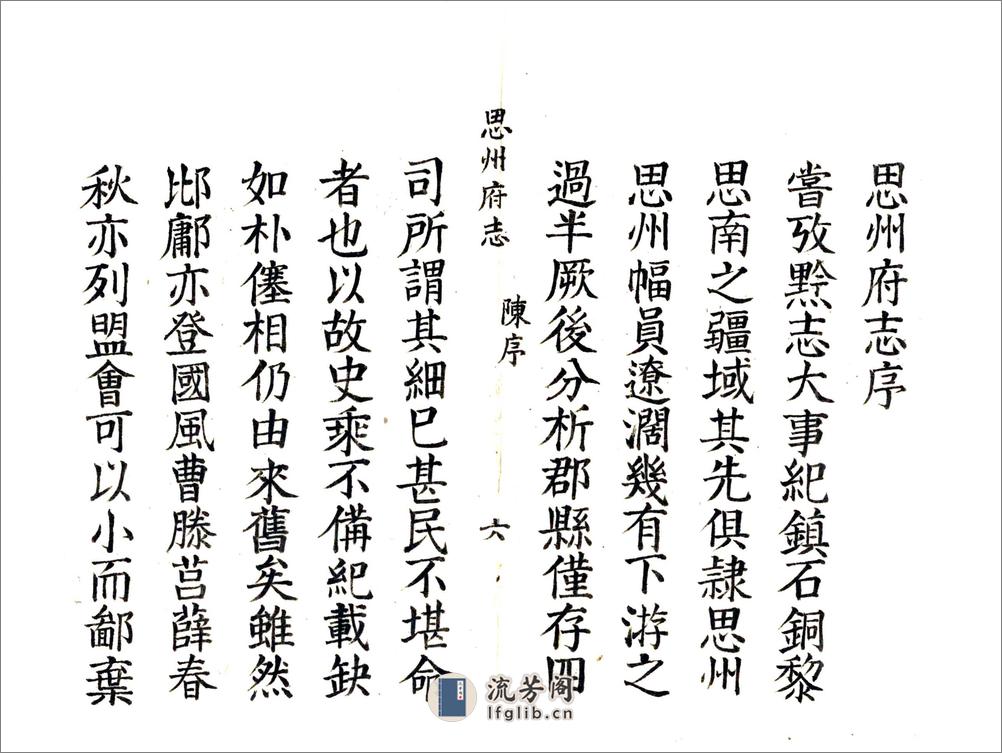 思州府志序
嘗攷黔志大事紀鎮石銅黎
思南之疆域其先俱隷思州
思州幅員遼濶幾有下游之
過半厥後分析郡縣僅存四
思州府志 陳序 六
司所謂其細已甚民不堪命
者也以故史乘不備紀載缺
如朴僿相仍由來舊矣雖然
邶鄘亦登國風曹滕莒薛春
秋亦列盟會可以小而鄙棄
流芳阁
lfglib.cn